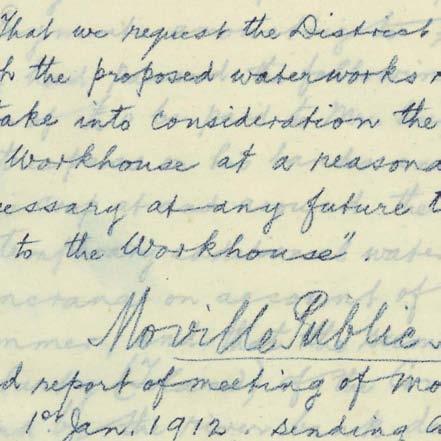 That we request the District
the proposed waterworks
take into consideration the
Workhouse at a reasona
cessary at any future t
to the Workhouse".
Moville Public
d report of meeting of Mo
1st Jan. 1912. sending